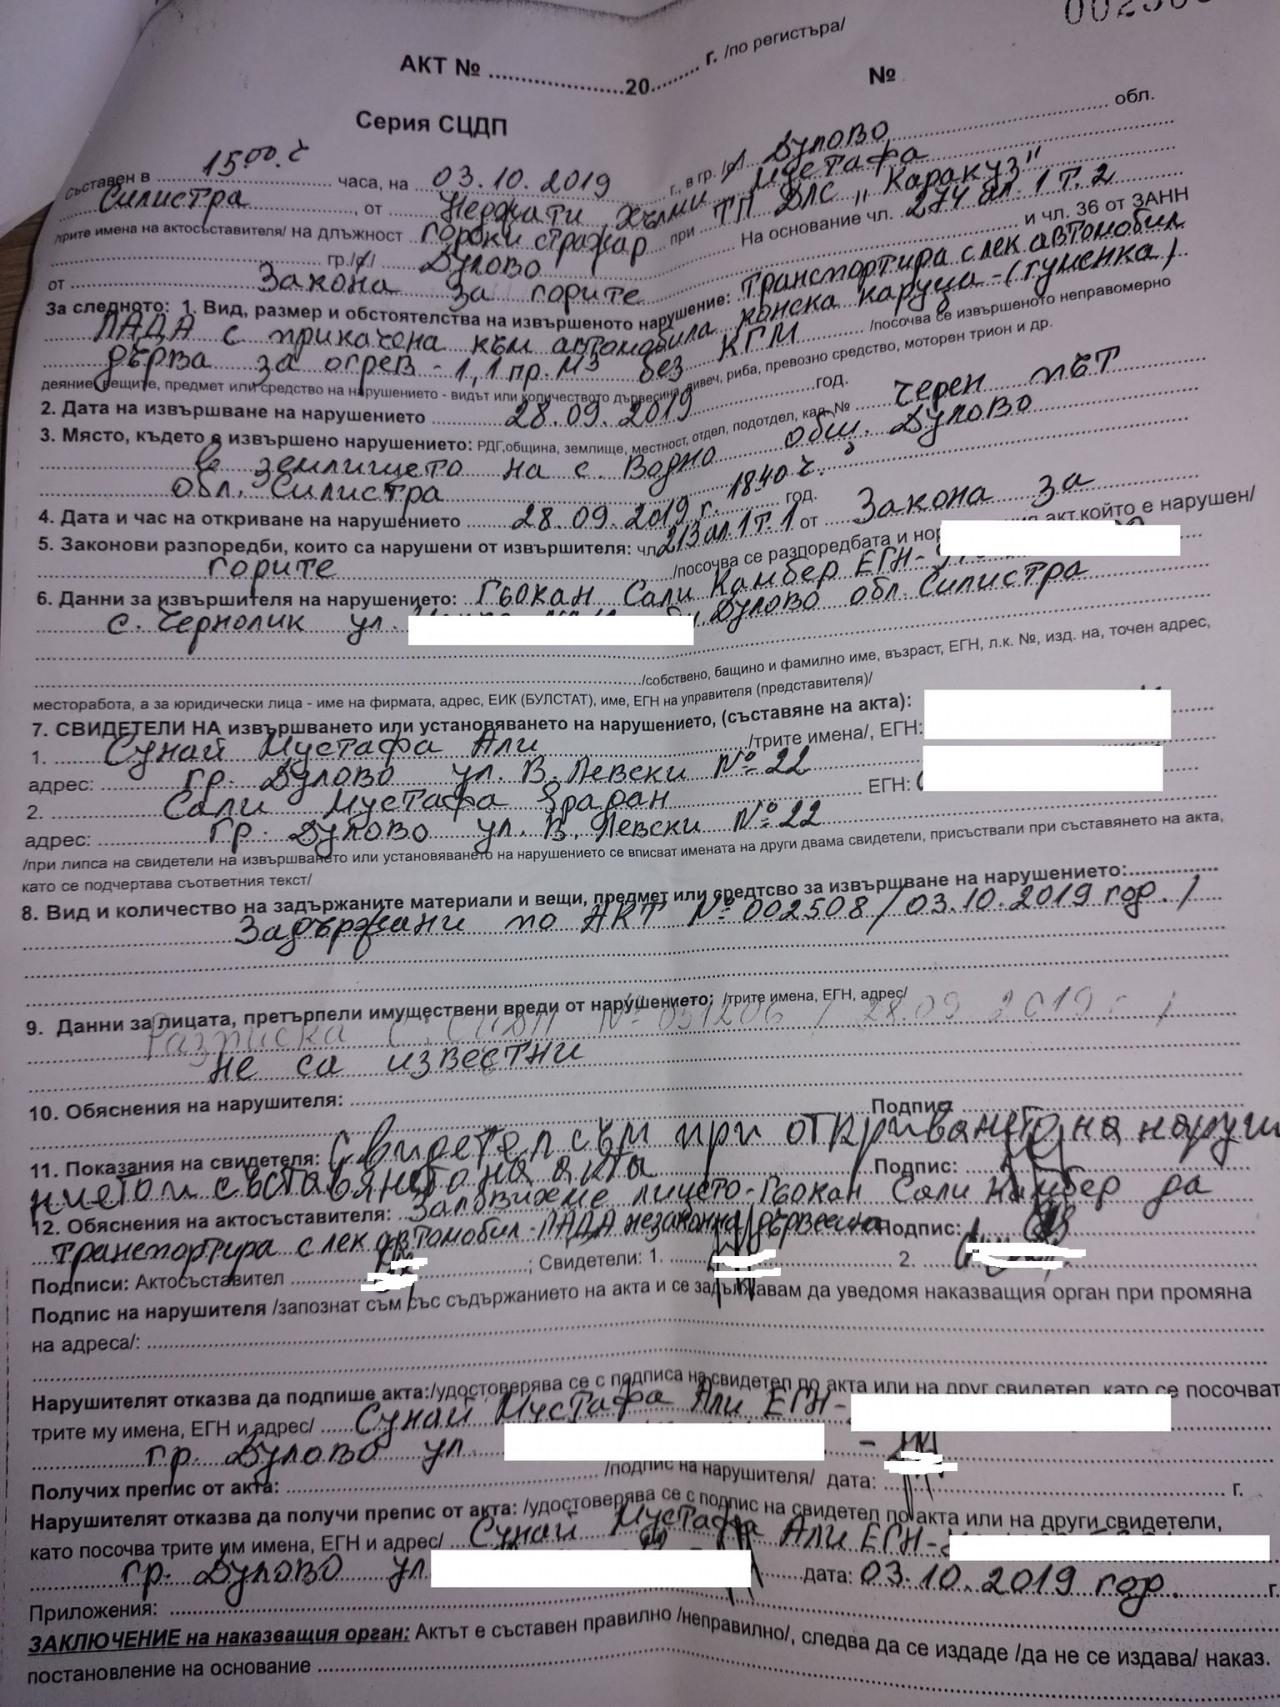 АКТ № ........20....... г. /по регистъра/
№
Серия СЦДП
Съставен в 15⁰⁰ ч часа, на 03.10.2019 г., в гр. /с/ Дулово обл.
Силистра, от Неджати Хълми Мустафа
/трите имена на актосъставителя/ на длъжност горски стражар при ТП ДЛС "Каракуз"
гр./с/ Дулово На основание чл. 274 ал. 1 т. 2
от Закона за горите и чл. 36 от ЗАНН
За следното: 1. Вид, размер и обстоятелства на извършеното нарушение: Транспортира с лек автомобил
ЛАДА с прикачена към автомобила конска каруца - (гуменка)
дърва за огрев - 1,1 пр. м³ без КГМ /посочва се извършеното неправомерно
деяние, вещите, предмет или средство на нарушението - видът или количеството дървесина, дивеч, риба, превозно средство, моторен трион и др.
2. Дата на извършване на нарушението 28.09.2019 год.
3. Място, където е извършено нарушението: РДГ, община, землище, местност, отдел, подотдел, кад. № черен път
в землището на с. Водно общ. Дулово
обл. Силистра
4. Дата и час на откриване на нарушението 28.09.2019 г. 18⁴⁰ ч. год.
5. Законови разпоредби, които са нарушени от извършителя: чл. 213 ал. 1 т. 1 от Закона за
горите /посочва се разпоредбата и нор акт, който е нарушен/
6. Данни за извършителя на нарушението: Гьокан Сали Камбер ЕГН-
с. Чернолик ул. Дулово обл. Силистра
/собствено, бащино и фамилно име, възраст, ЕГН, л.к. №, изд. на, точен адрес,
месторабота, а за юридически лица - име на фирмата, адрес, ЕИК (БУЛСТАТ), име, ЕГН на управителя (представителя)/
7. СВИДЕТЕЛИ НА извършването или установяването на нарушението, (съставяне на акта):
1. Сунай Мустафа Али /трите имена/, ЕГН:
адрес: гр. Дулово ул. В. Левски № 22
2. Сали Мустафа ЕГН:
адрес: гр. Дулово ул. В. Левски № 22
/при липса на свидетели на извършването или установяването на нарушението се вписват имената на други двама свидетели, присъствали при съставянето на акта,
като се подчертава съответния текст/
8. Вид и количество на задържаните материали и вещи, предмет или средтсво за извършване на нарушението:
Задържани по АКТ № 002508 / 03.10.2019 год. /
9. Данни за лицата, претърпели имуществени вреди от нарушението: /трите имена, ЕГН, адрес/
Разписка С. СЦДП № 051206 / 28.09.2019 г /
не са известни
10. Обяснения на нарушителя: Подпис
11. Показания на свидетеля: Свидетел съм при откриването на наруше
нието и съставянето на акта Подпис:
12. Обяснения на актосъставителя: Заловихме лицето - Гьокан Сали Камбер да
транспортира с лек автомобил - ЛАДА незаконна дървесина Подпис:
Подписи: Актосъставител ; Свидетели: 1. 2.
Подпис на нарушителя /запознат съм със съдържанието на акта и се задължавам да уведомя наказващия орган при промяна
на адреса/:
Нарушителят отказва да подпише акта:/удостоверява се с подписа на свидетел по акта или на друг свидетел, като се посочват
трите му имена, ЕГН и адрес/ Сунай Мустафа Али ЕГН-
гр. Дулово ул. -
/подпис на нарушителя/ дата: г.
Получих препис от акта:
Нарушителят отказва да получи препис от акта: /удостоверява се с подпис на свидетел по акта или на други свидетели,
като посочва трите им имена, ЕГН и адрес/ Сунай Мустафа Али ЕГН-
гр. Дулово ул дата: 03.10.2019 год. г.
Приложения:
ЗАКЛЮЧЕНИЕ на наказващия орган: Актът е съставен правилно /неправилно/, следва да се издаде /да не се издава/ наказ.
постановление на основание